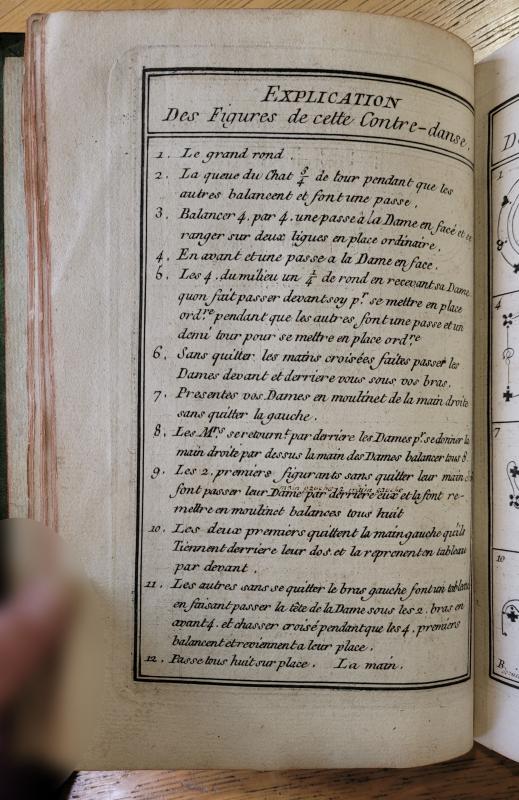 EXPLICATION
Des Figures de cette Contre-danse.
1. Le grand rond.
2. La queue du Chat 3/4 de tour pendant que les
autres balancent et font une passe.
3. Balancer 4. par 4. une passe à la Dame en face et se
ranger sur deux lignes en place ordinaire.
4. En avant et une passe a la Dame en face.
5. Les 4. du milieu un 1/4 de rond en recevant sa Dame
quon fait passer devant soy pr. se mettre en place
ordre pendant que les autres font une passe et un
demi tour pour se mettre en place ordre
6. Sans quitter les mains croisées faites passer les
Dames devant et derriere vous sous vos bras.
7. Presentes vos Dames en moulinet de la main droite
sans quitter la gauche.
8. Les Mrs. se retournt par derriere les Dames pr. se donner la
main droite par dessus la main des Dames balancer tous 8.
9. Les 2. premiers figurants sans quitter leur main
font passer leur Dame par derriere eux et la font re-
mettre en moulinet balances tous huit
10. Les deux premiers quittent la main gauche quils
Tiennent derriere leur dos. et la reprenent en tableau
par devant.
11. Les autres sans se quitter le bras gauche font un tableau
en faisant passer la tête de la Dame sous les 2. bras en
avant 4. et chasser croisé pendant que les 4. premiers
balancent et reviennent a leur place.
12. Passe tous huit sur place. La main.
D
1
4
7
10
B